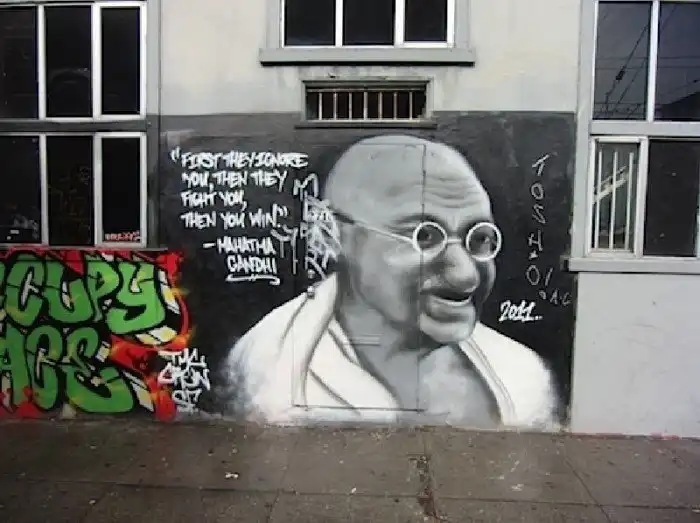 "FIRST THEY IGNORE
YOU, THEN THEY
FIGHT YOU,
THEN YOU WIN"
—MAHATMA
GANDHI
CCUPY
ACE
2011..